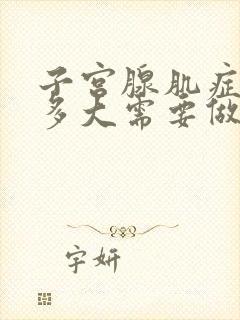 子宫腺肌症
多大需要做
字妍